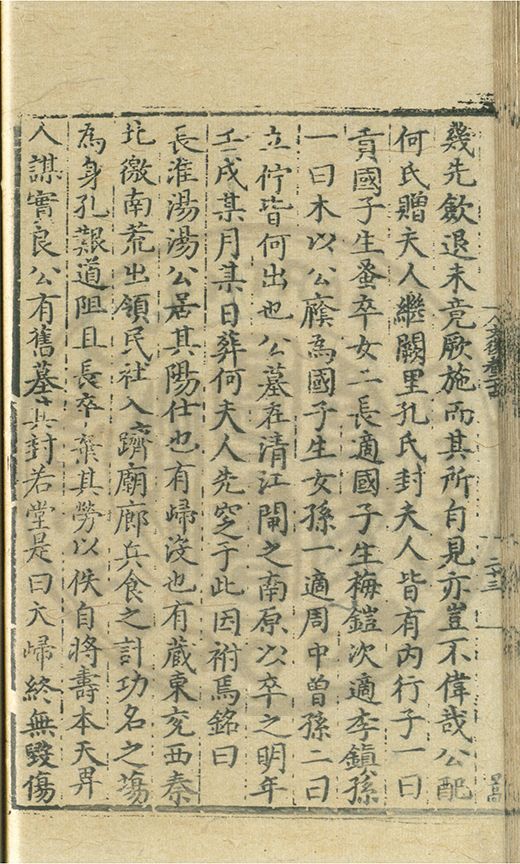 幾先歛退未竟厥施而其所自見亦豈不偉哉公配
何氏贈夫人繼闕里孔氏封夫人皆有內行子一曰
貢國子生蚤卒女二長適國子生梅鎧次適李鎮孫
一曰木以公廕為國子生女孫一適周中曾孫二曰
立佇皆何出也公墓在清江閘之南原以卒之明年
壬戌某月某日葬何夫人先窆于此因祔焉銘曰
長淮湯湯公居其陽仕也有歸沒也有藏東兗西秦
北徼南荒出領民社入躋廟廊兵食之計功名之場
為身孔艱道阻且長卒棄其勞以佚自將壽本天畀
人謀實良公有舊墓其封若堂是曰大歸終無毀傷
二十三